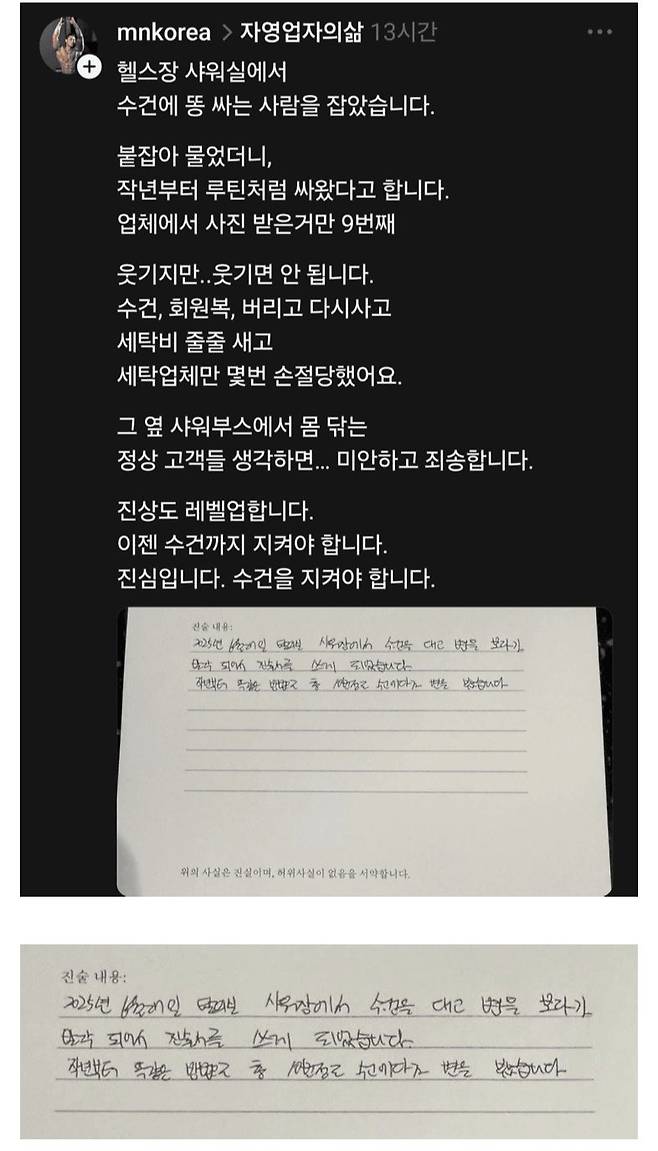 mnkorea > 자영업자의삶 13시간
헬스장 샤워실에서
수건에 똥 싸는 사람을 잡았습니다.
붙잡아 물었더니,
작년부터 루틴처럼 싸왔다고 합니다.
업체에서 사진 받은거만 9번째
웃기지만..웃기면 안 됩니다.
수건, 회원복, 버리고 다시사고
세탁비 줄줄 새고
세탁업체만 몇번 손절당했어요.
그 옆 샤워부스에서 몸 닦는
정상 고객들 생각하면... 미안하고 죄송합니다.
진상도 레벨업합니다.
이젠 수건까지 지켜야 합니다.
진심입니다. 수건을 지켜야 합니다.
진술 내용:
2025년 샤워장에서 수건을 대고 변을 보다가
발각 되어서 진술서를 쓰게 되었습니다
작년부터 똑같은 방법으로 총 수건에다가 변을 보았습니다
위의 사실은 진실이며, 허위사실이 없음을 서약합니다.
진술 내용:
2025년 샤워장에서 수건을 대고 변을 보다가
발각 되어서 진술서를 쓰게 되었습니다
작년부터 똑같은 방법으로 총 수건에다가 변을 보았습니다